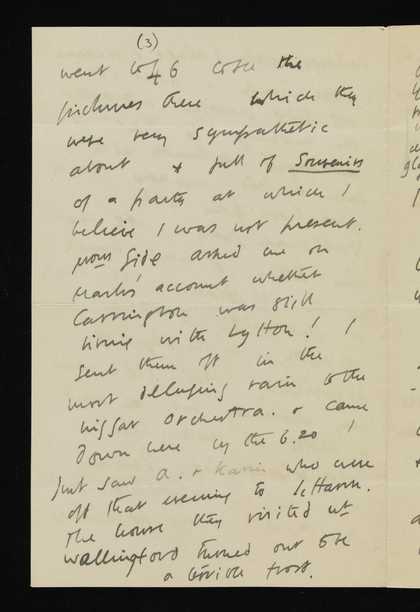 (3)
went to 46 to see the
pictures there which they
were very sympathetic
about & full of Souvenirs
of a party at which I
believe I was not present.
Mons Gide asked me on
Mark's account whether
Carrington was still
living with Lytton! I
sent them off in the
most deluging rain to the
nigger orchestra. & came
down here by the 6.20 !
Just saw A. & Karin who were
off that evening to le Havre.
The house they visited at
Wallingford turned out to be
a terrible frost.